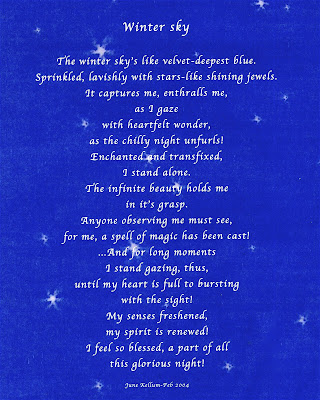 Winter sky
The winter sky's like velvet-deepest blue.
Sprinkled, lavishly with stars-like shining jewels.
It captures me, enthralls me,
as I gaze
with heartfelt wonder,
as the chilly night unfurls!
Enchanted and transfixed,
I stand alone.
The infinite beauty holds me
in it's grasp.
Anyone observing me must see,
for me, a spell of magic has been cast!
...And for long moments
I stand gazing, thus,
until my heart is full to bursting
with the sight!
My senses freshened,
my spirit is renewed!
I feel so blessed, a part of all
this glorious night!
June Kellum-Feb 2004